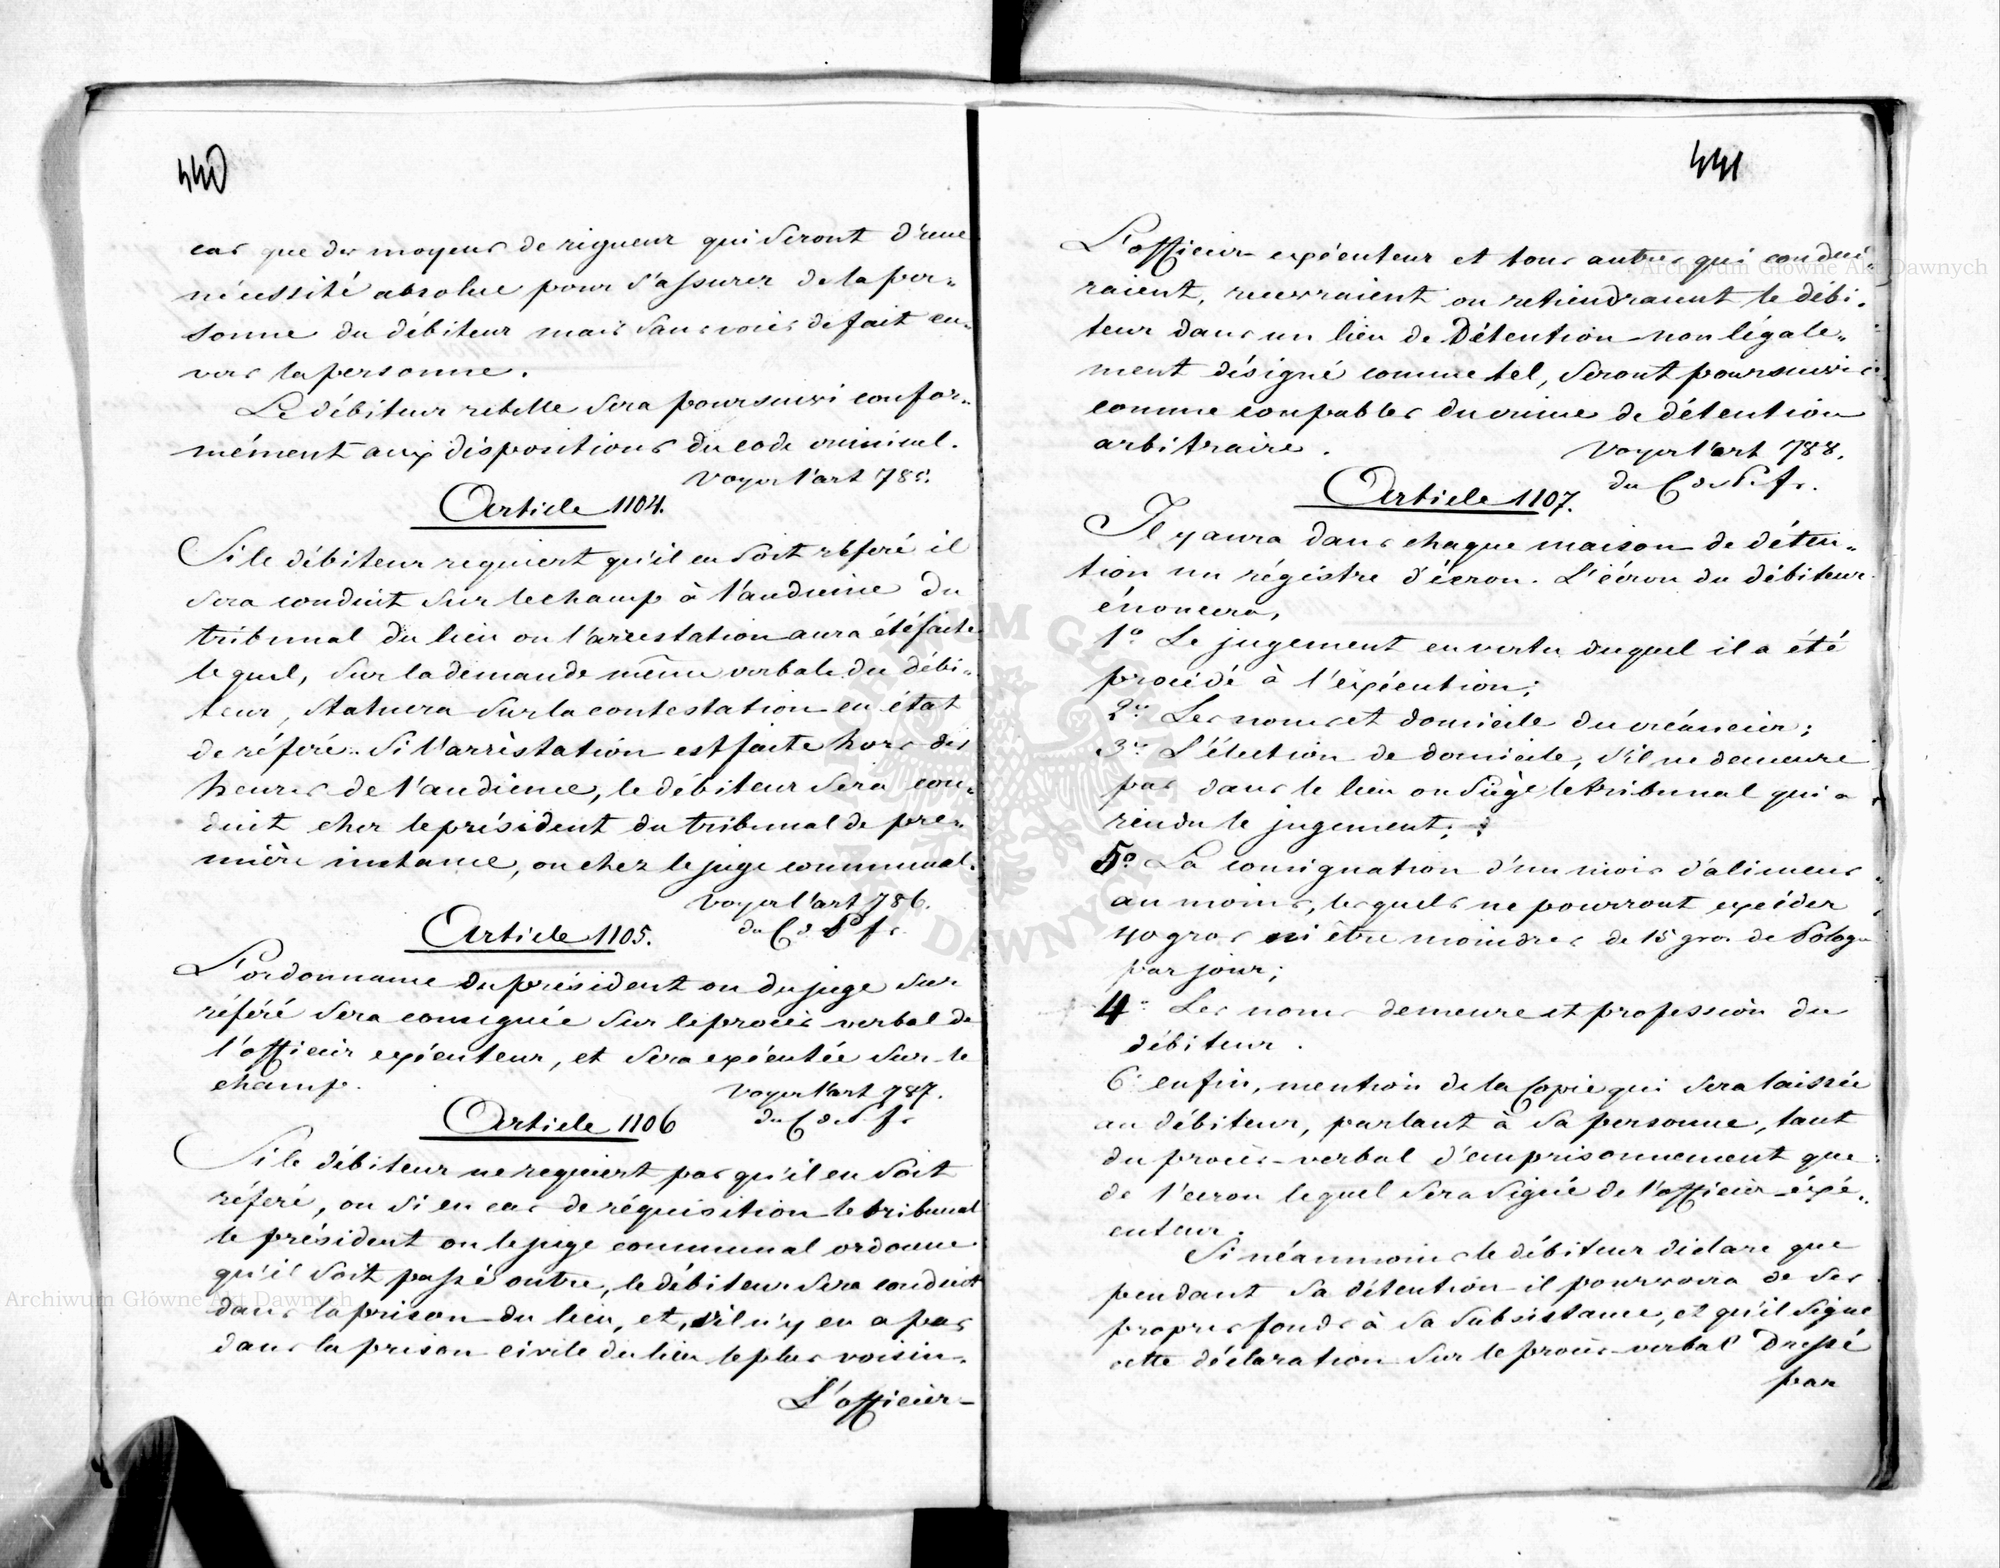 440
cas que des moyens de rigueur qui seront d'une
nécessité absolue pour s'assurer de la per-
sonne du débiteur mais sans voies de fait en-
vers la personne.
Le débiteur rebelle sera poursuivi confor-
mément aux dispositions du code criminel.
Voyez l'art 785.
Article 1104.
Si le débiteur requiert qu'il en soit référé il
sera conduit sur le champ à l'audience du
tribunal du lieu ou l'arrestation aura été faite
lequel, sur la demande même verbale du débi-
teur, statuera sur la contestation en état
de référé. Si l'arrestation est faite hors des
heures de l'audience, le débiteur sera con-
duit chez le président du tribunal de pre-
mière instance, ou chez le juge communal.
Voyez l'art 786.
du C d P fr.
Article 1105.
L'ordonnance du président ou du juge sur
référé sera consignée sur le procès verbal de
l'officier exécuteur, et sera exécutée sur le
champ.
Voyez l'art 787.
du C de P. fr
Article 1106
Si le débiteur ne requiert pas qu'il en soit
référé, ou si en cas de réquisition le tribunal
le président ou le juge communal ordonne
qu'il soit passé outre, le débiteur sera conduit
dans la prison du lieu, et, s'il n'y en a pas
dans la prison civile du lieu le plus voisin.
L'officier-
441
L'officier exécuteur et tous autres qui condui-
raient, recevraient ou retiendraient le débi-
teur dans un lieu de Détention non légale-
ment désigné comme tel, seront poursuivis
comme coupables du crime de détention
arbitraire.
Voyez l'art 788.
du C de P. fr.
Article 1107.
Il y aura dans chaque maison de déten-
tion un régistre d'écrou. L'écrou du débiteur
énoncera,
1° Le jugement en vertu duquel il a été
procédé à l'exécution;
2° Les noms et domicile du créancier;
3° L'élection de domicile, s'il ne demeure
pas dans le lieu ou siège le tribunal qui a
rendu le jugement;
5° La consignation d'un mois d'alimens
au moins, lesquels ne pourront excéder
40 gros ni être moindres de 15 gros de Pologne
par jour;
4° Les noms demeure et profession du
débiteur.
6° enfin, mention de la Copie qui sera laissée
au débiteur, parlant à sa personne, tant
du procès-verbal d'emprisonnement que
de l'ecrou lequel sera signé de l'officier éxé-
cuteur.
Si néanmoins le débiteur déclare que
pendant sa détention il pourvoira de ses
propres fonds à sa subsistance, et qu'il signe
cette déclaration sur le procès-verbal Dressé
par
Archiwum Główne Akt Dawnych
Archiwum Główne Akt Dawnych
ARCHIWUM GŁÓWNE AKT DAWNYCH